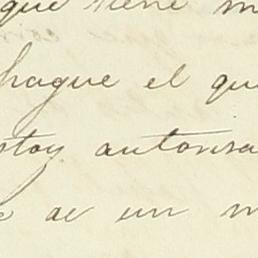 que tiene m
hague el qu
stoy autorisa
de un m